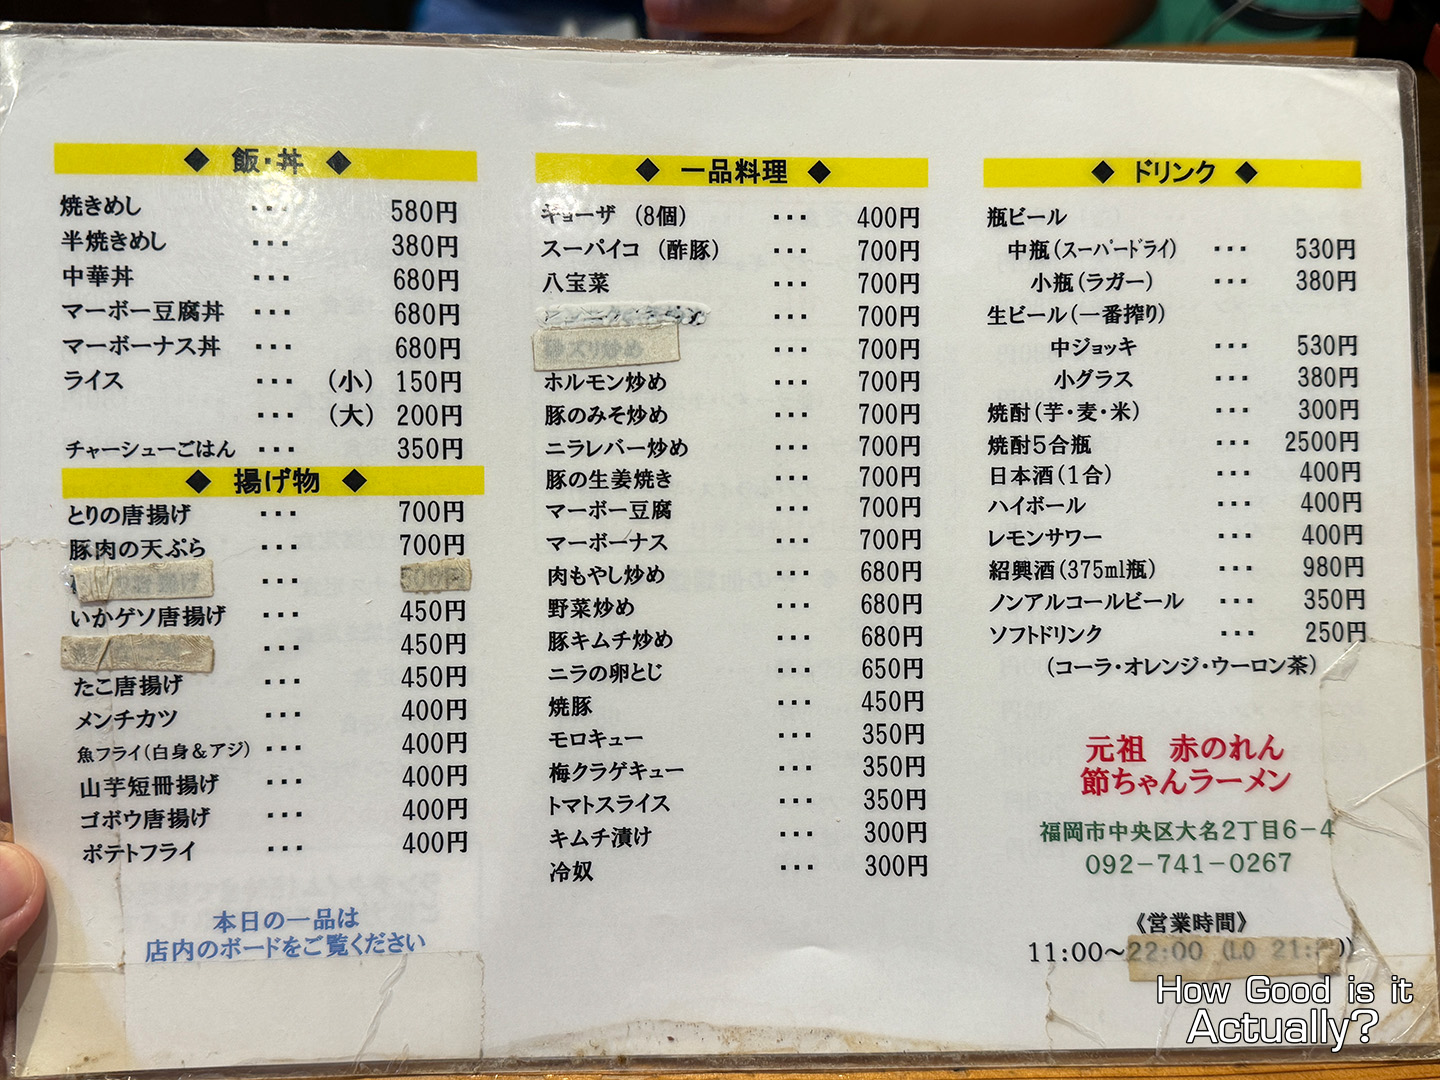 ◆ 飯・丼 ◆
焼きめし ・・・ 580円
半焼きめし ・・・ 380円
中華丼 ・・・ 680円
マーボー豆腐丼 ・・・ 680円
マーボーナス丼 ・・・ 680円
ライス ・・・ （小） 150円
・・・ （大） 200円
チャーシューごはん ・・・ 350円
◆ 揚げ物 ◆
とりの唐揚げ ・・・ 700円
豚肉の天ぷら ・・・ 700円
・・・
いかゲソ唐揚げ ・・・ 450円
・・・ 450円
たこ唐揚げ ・・・ 450円
メンチカツ ・・・ 400円
魚フライ（白身＆アジ） ・・・ 400円
山芋短冊揚げ ・・・ 400円
ゴボウ唐揚げ ・・・ 400円
ポテトフライ ・・・ 400円
本日の一品は
店内のボードをご覧ください
◆ 一品料理 ◆
ギョーザ （8個） ・・・ 400円
スーパイコ （酢豚） ・・・ 700円
八宝菜 ・・・ 700円
・・・ 700円
砂ズリ炒め ・・・ 700円
ホルモン炒め ・・・ 700円
豚のみそ炒め ・・・ 700円
ニラレバー炒め ・・・ 700円
豚の生姜焼き ・・・ 700円
マーボー豆腐 ・・・ 700円
マーボーナス ・・・ 700円
肉もやし炒め ・・・ 680円
野菜炒め ・・・ 680円
豚キムチ炒め ・・・ 680円
ニラの卵とじ ・・・ 650円
焼豚 ・・・ 450円
モロキュー ・・・ 350円
梅クラゲキュー ・・・ 350円
トマトスライス ・・・ 350円
キムチ漬け ・・・ 300円
冷奴 ・・・ 300円
◆ ドリンク ◆
瓶ビール
中瓶（スーパードライ） ・・・ 530円
小瓶（ラガー） ・・・ 380円
生ビール（一番搾り）
中ジョッキ ・・・ 530円
小グラス ・・・ 380円
焼酎（芋・麦・米） ・・・ 300円
焼酎5合瓶 ・・・ 2500円
日本酒（1合） ・・・ 400円
ハイボール ・・・ 400円
レモンサワー ・・・ 400円
紹興酒（375ml瓶） ・・・ 980円
ノンアルコールビール ・・・ 350円
ソフトドリンク ・・・ 250円
（コーラ・オレンジ・ウーロン茶）
元祖 赤のれん
節ちゃんラーメン
福岡市中央区大名2丁目6－4
092－741－0267
《営業時間》
11:00～22:00 (LO 21:
How Good is it
Actually?